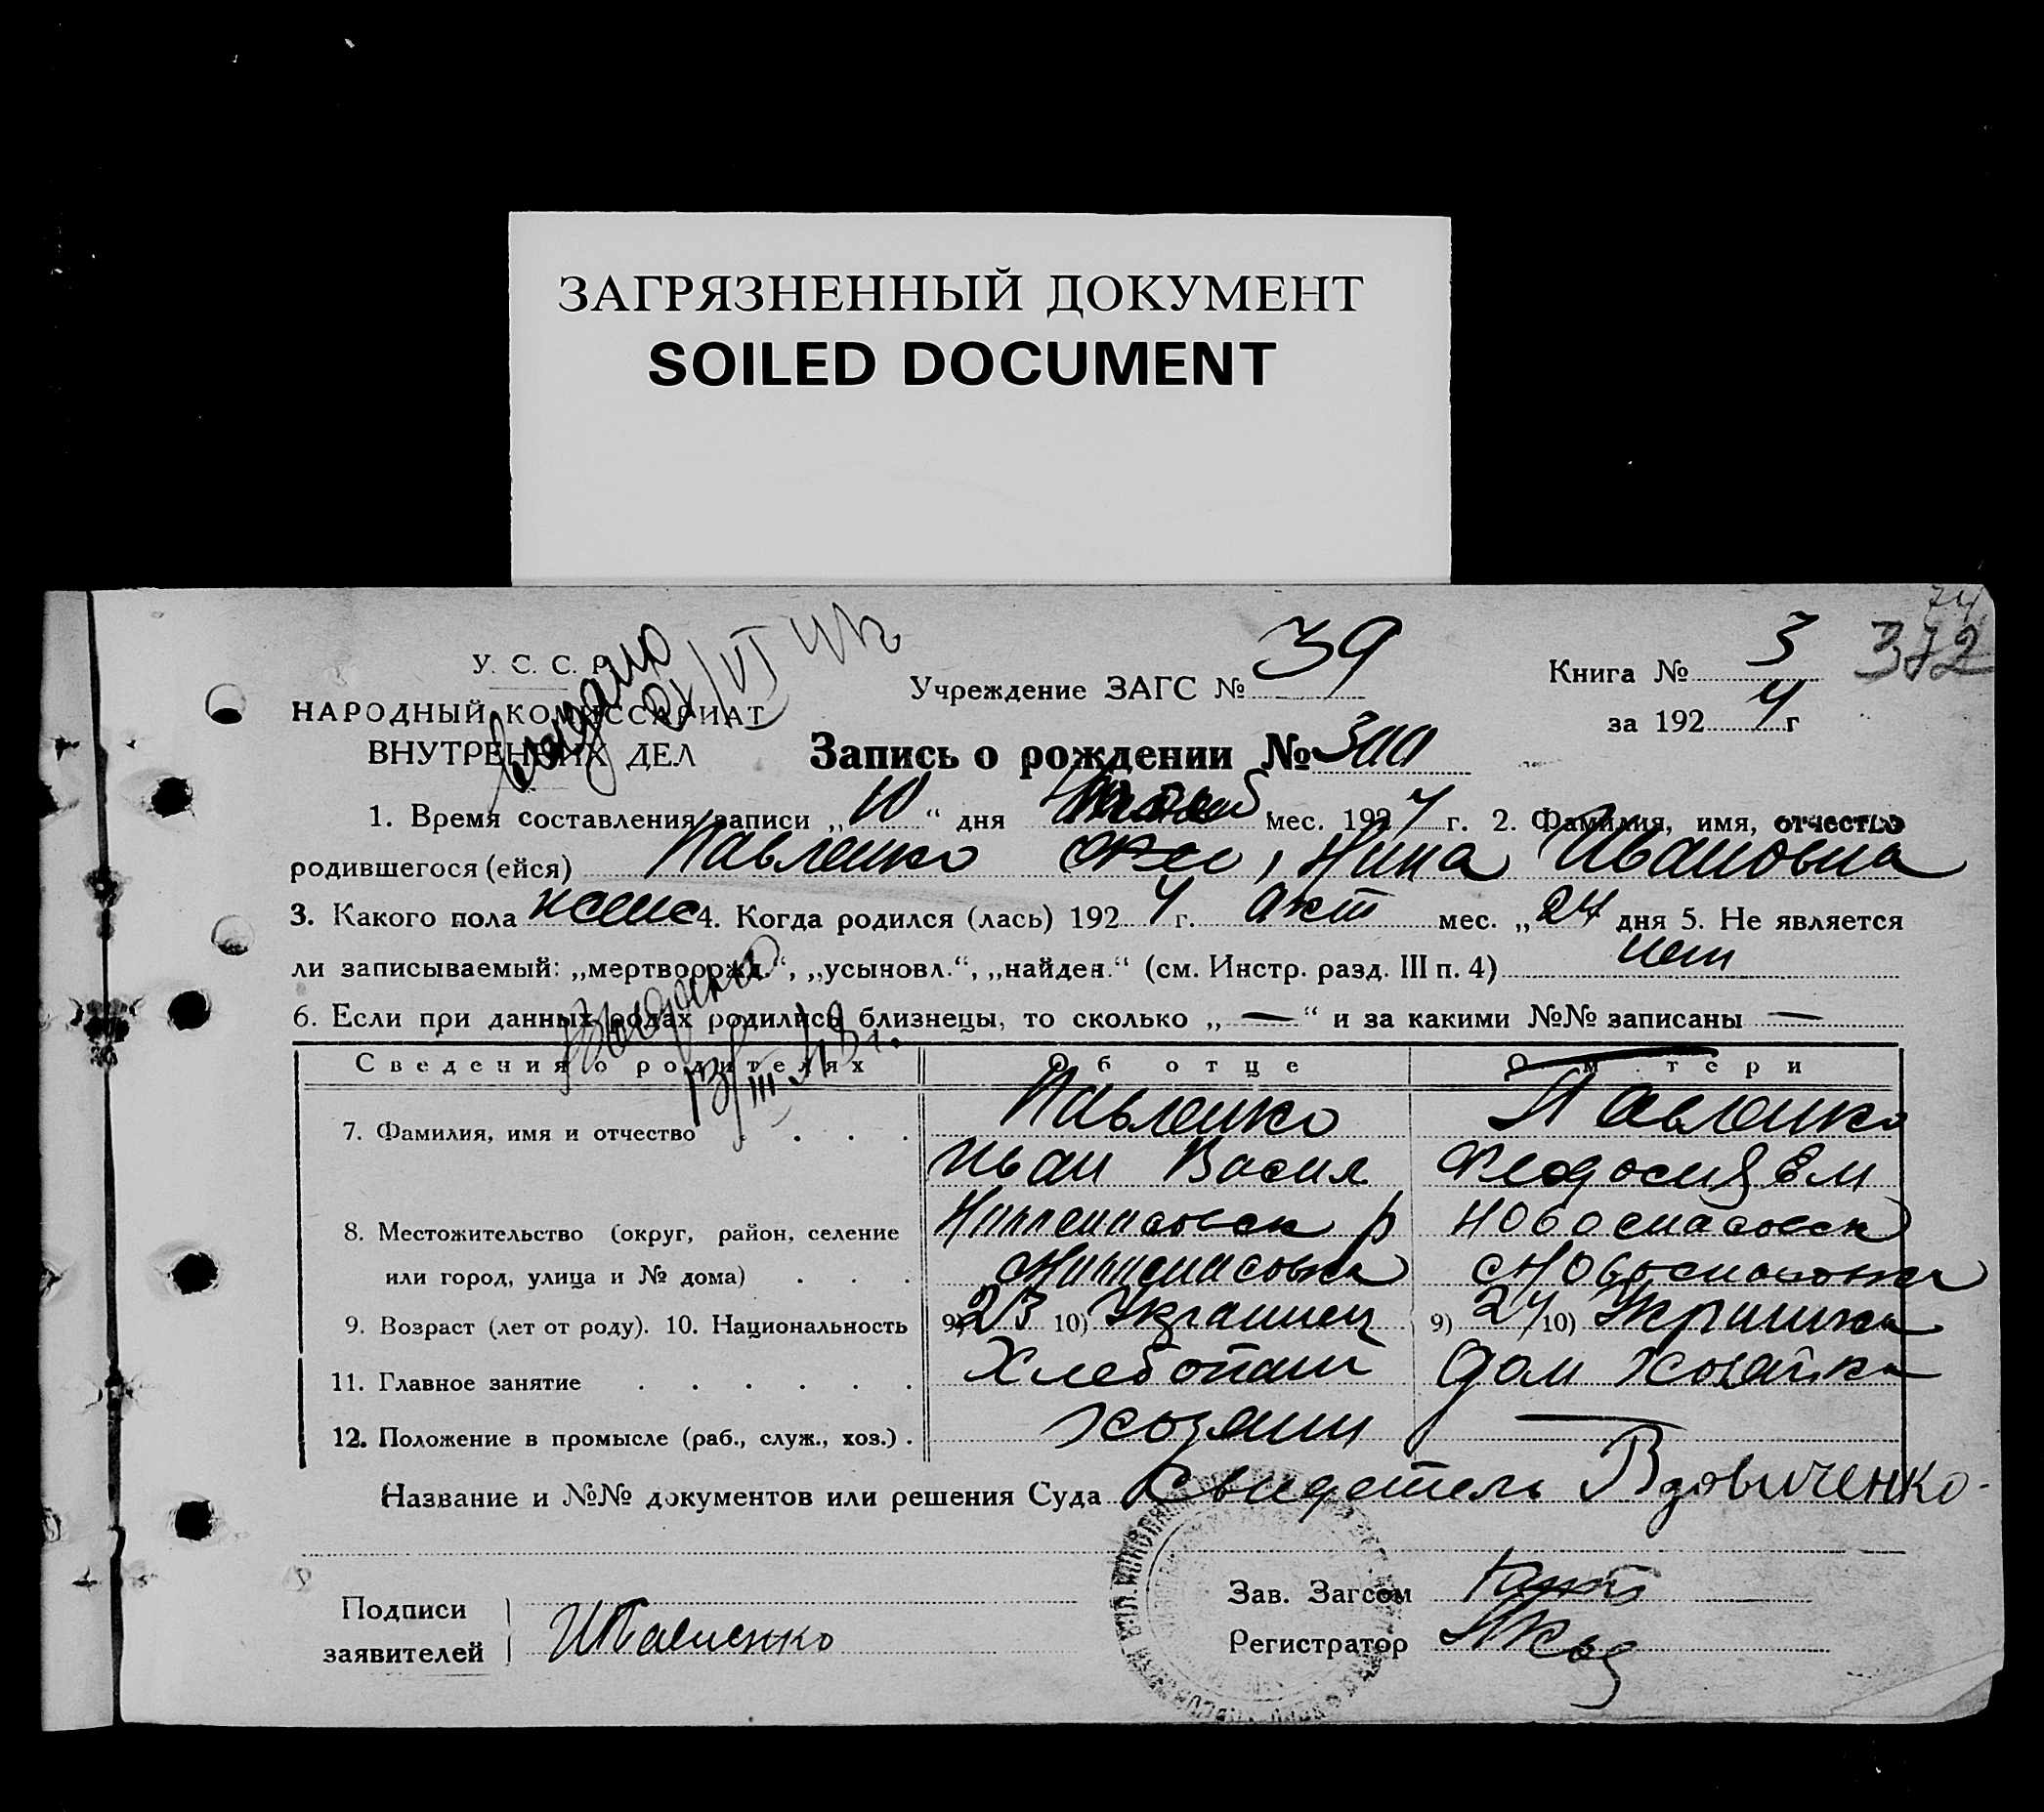 ЗАГРЯЗНЕННЫЙ ДОКУМЕНТ
SOILED DOCUMENT
74
372
У. С. С. Р.
НАРОДНЫЙ КОМИССАРИАТ
ВНУТРЕННИХ ДЕЛ
Выдано
Учреждение ЗАГС № 39
Книга № 3
за 1924 г
Запись о рождении №300
1. Время составления записи „10“ дня мес. 1924 г. 2. Фамилия, имя, отчество
родившегося (ейся) Павленко Нина Ивановна
3. Какого пола женс 4. Когда родился (лась) 1924 г. окт мес. „24 дня 5. Не является
ли записываемый: „мертворожд.“, „усыновл.“, „найден.“ (см. Инстр. разд. III п. 4) нет
6. Если при данных родах родились близнецы, то сколько „—“ и за какими №№ записаны —
Сведения о родителях Об отце О матери
7. Фамилия, имя и отчество Павленко Павленко
Иван Васил Федосия Ем
8. Местожительство (округ, район, селение Новоспасовск р Новоспасовск
или город, улица и № дома) с Новоспасовка с Новоспасовка
9. Возраст (лет от роду). 10. Национальность 9) 23 10) Украинец 9) 24 10) Украинка
11. Главное занятие Хлебопаш Дом хозяйка
12. Положение в промысле (раб., служ., хоз.) хозяин —
Название и №№ документов или решения Суда Свидетель Вдовиченко
Подписи
заявителей ИПавленко
Зав. Загсом
Регистратор